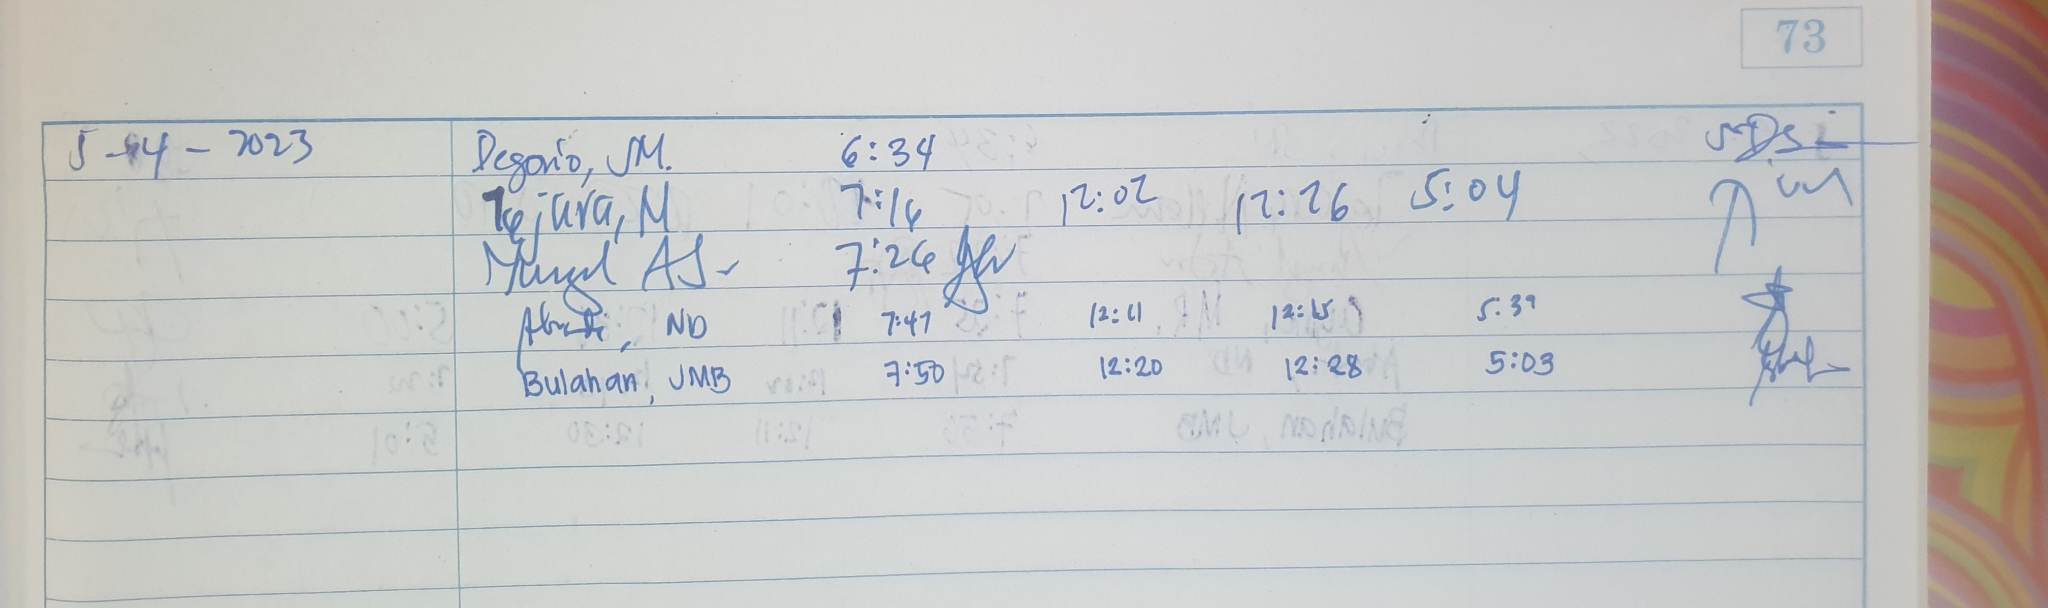 73
5-4-2023 Degorio, JM. 6:34
Tejara, M 7:16 12:02 12:26 5:04
AJ 7:26
ND 7:47 12:11 12:15 5:39
Bulahan, JMB 7:50 12:20 12:28 5:03